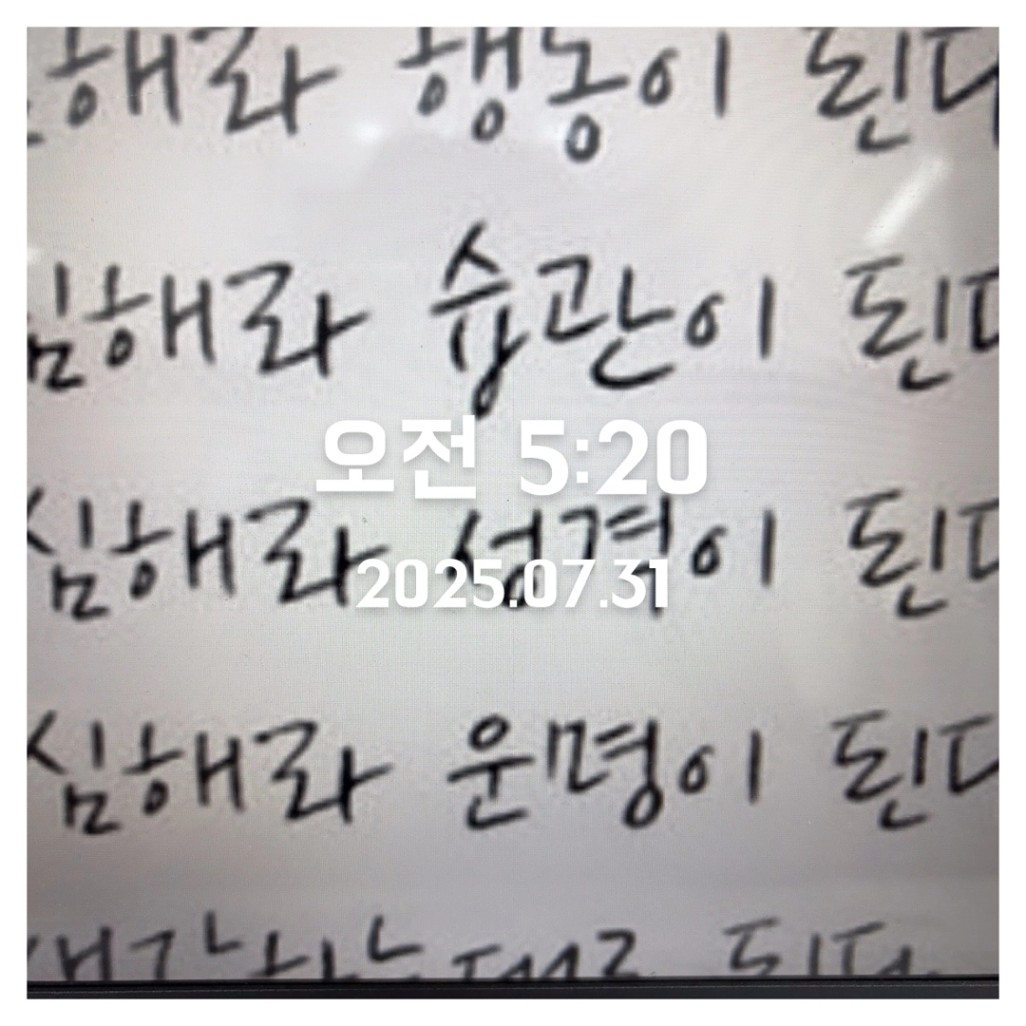 해라 행동이 된다
심해라 습관이 된다
오전 5:20
심해라 성격이 된다
2025.07.31
심해라 운명이 된다
생각하는대로 된다